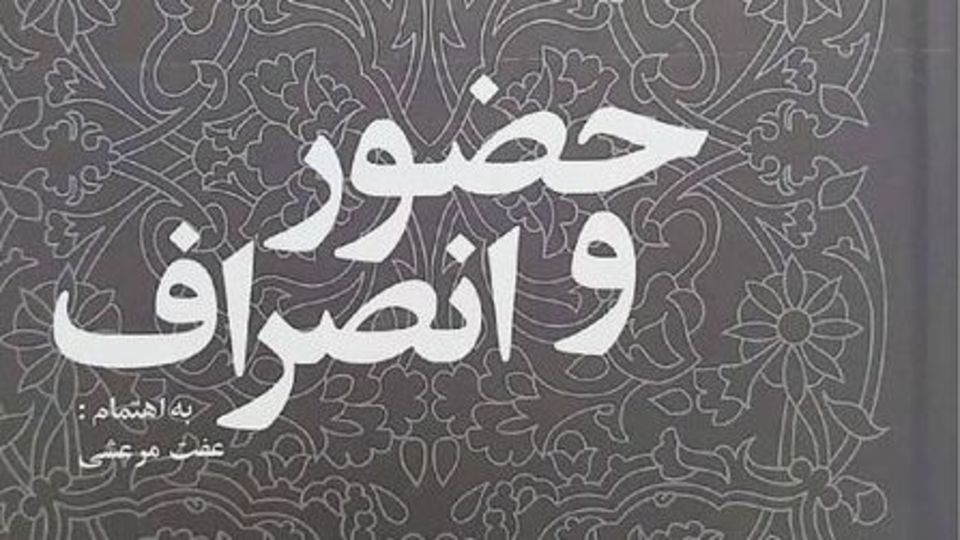 حضور
و انصراف
به اهتمام :
عفت مرعشی